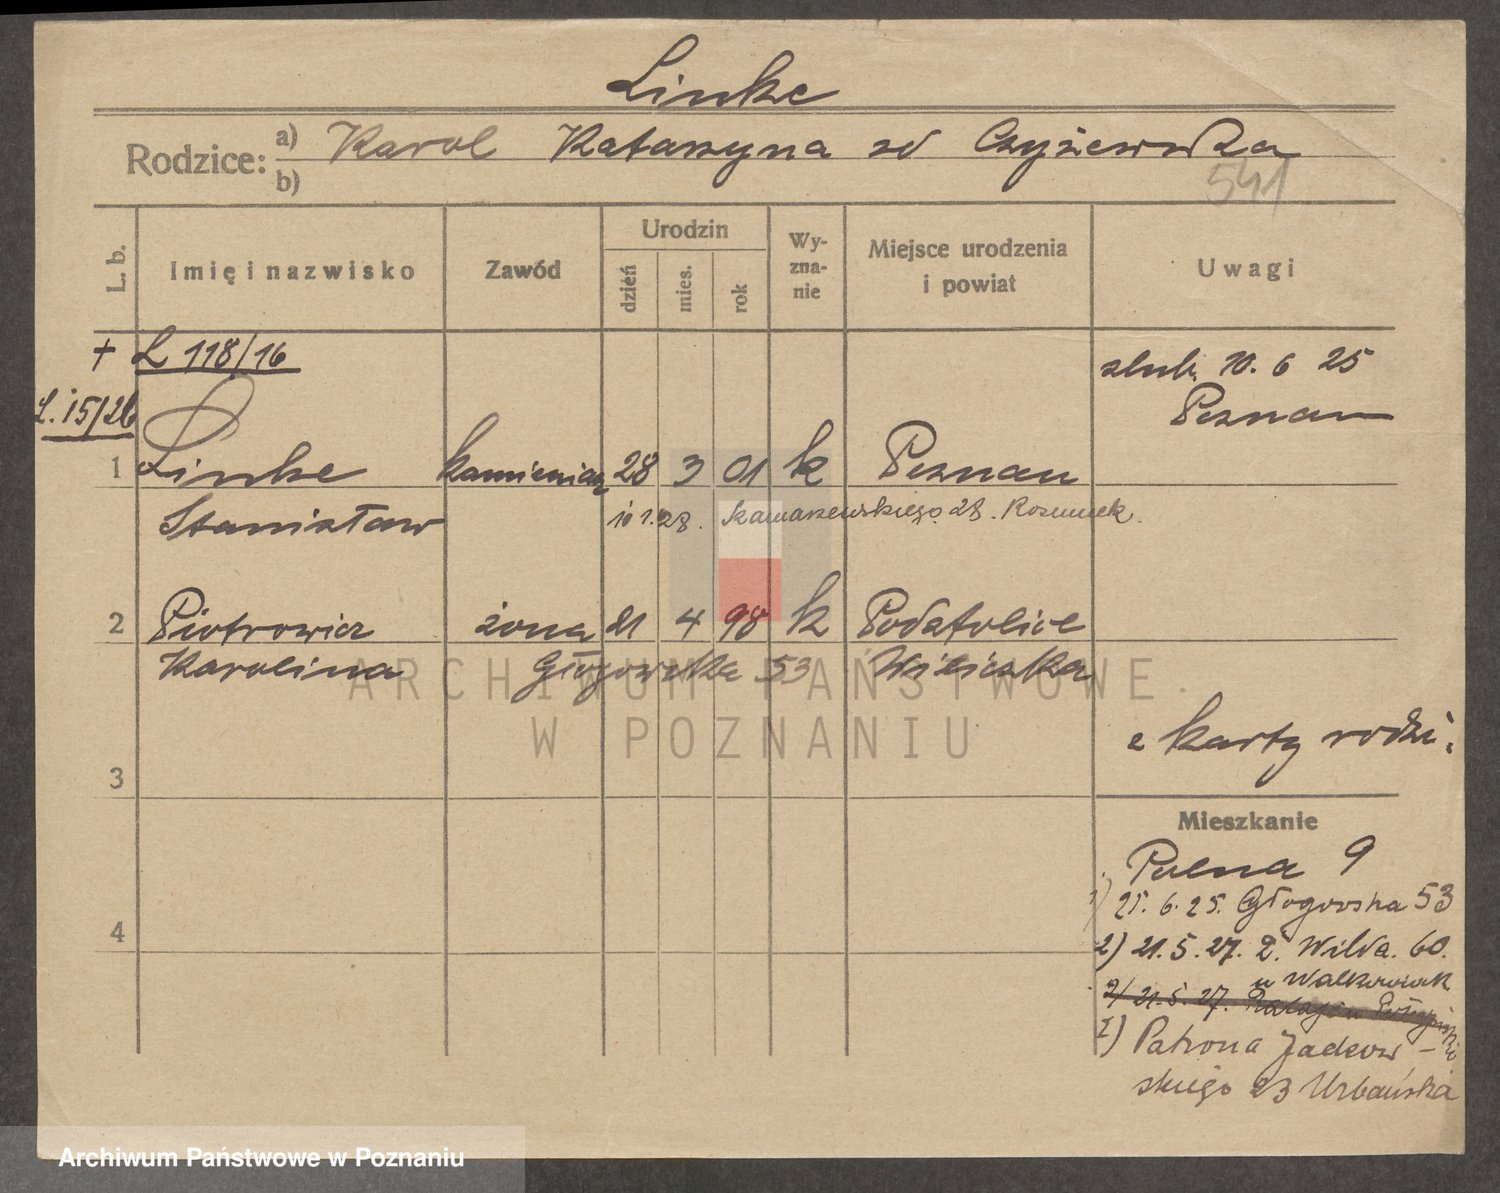 Linke
Rodzice: a) Karol Katarzyna zd Czyżewska
b)
541
L. b.
Imię i nazwisko
Zawód
Urodzin
dzień
mies.
rok
Wy-
zna-
nie
Miejsce urodzenia
i powiat
Uwagi
+ L 118/16
L. 15/26
ślub. 10. 6 25
Poznań
1 Linke kamieniarz 28 3 01 k Poznań
Stanisław
10 1. 28. 28.
2 Piotrowicz żona 21 4 98 k Podstolice
Karolina Głogowska 53 Wieliczka
z karty rodzi.
3
Mieszkanie
Polna 9
1) 25. 6. 25. Głogowska 53
4
2) 21. 5. 27. Wilda. 60.
u Walkowiak
2) 21. 5. 27.
Patrona Jackow-
skiego 23 Urbańska
ARCHIWUM PAŃSTWOWE
W POZNANIU
Archiwum Państwowe w Poznaniu